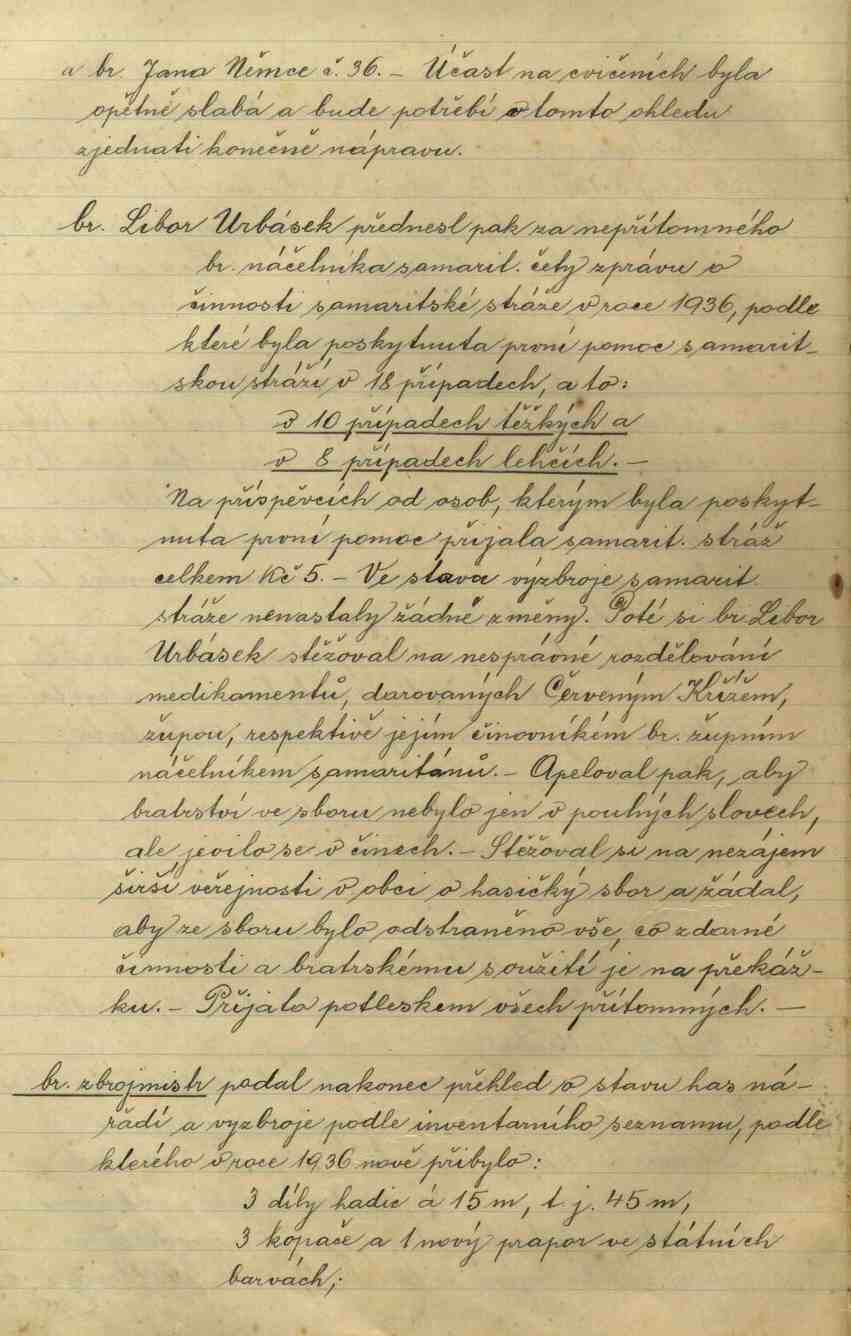 a br. Jana Němce č. 36. – Účast na cvičeních byla
opětně slabá a bude potřebí v tomto ohledu
zjednati konečně nápravu.
br. Libor Urbásek přednesl pak za nepřítomného
br. náčelníka samarit. čety zprávu o
činnosti samaritské stráže v roce 1936, podle
které byla poskytnuta první pomoc samarit-
skou stráží v 18 případech, a to:
v 10 případech těžkých a
v 8 případech lehčích. –
Na příspěvcích od osob, kterým byla poskyt-
nuta první pomoc přijala samarit. stráž
celkem Kč 5. – Ve stavu výzbroje samarit.
stráže nenastaly žádné změny. Poté si br. Libor
Urbásek stěžoval na nesprávné rozdělování
medikamentů, darovaných Červeným Křížem,
župou, respektivě jejím činovníkém br. župním
náčelníkem samaritánů. – Apeloval pak, aby
bratrství ve sboru nebylo jen v pouhých slovech,
ale jevilo se v činech. – Stěžoval si na nezájem
širší veřejnosti v obci o hasičký sbor a žádal,
aby ze sboru bylo odstraněno vše, co zdarné
činnosti a bratrskému soužití je na překáž-
ku. – Přijato potleskem všech přítomných. –
br. zbrojmistr podal nakonec přehled o stavu has ná-
řadí a vyzbroje podle inventarního seznamu, podle
kterého v roce 1936 nově přibylo:
3 díly hadic á 15 m, t. j. 45 m,
3 kopače a 1 nový prapor ve státních
barvách;